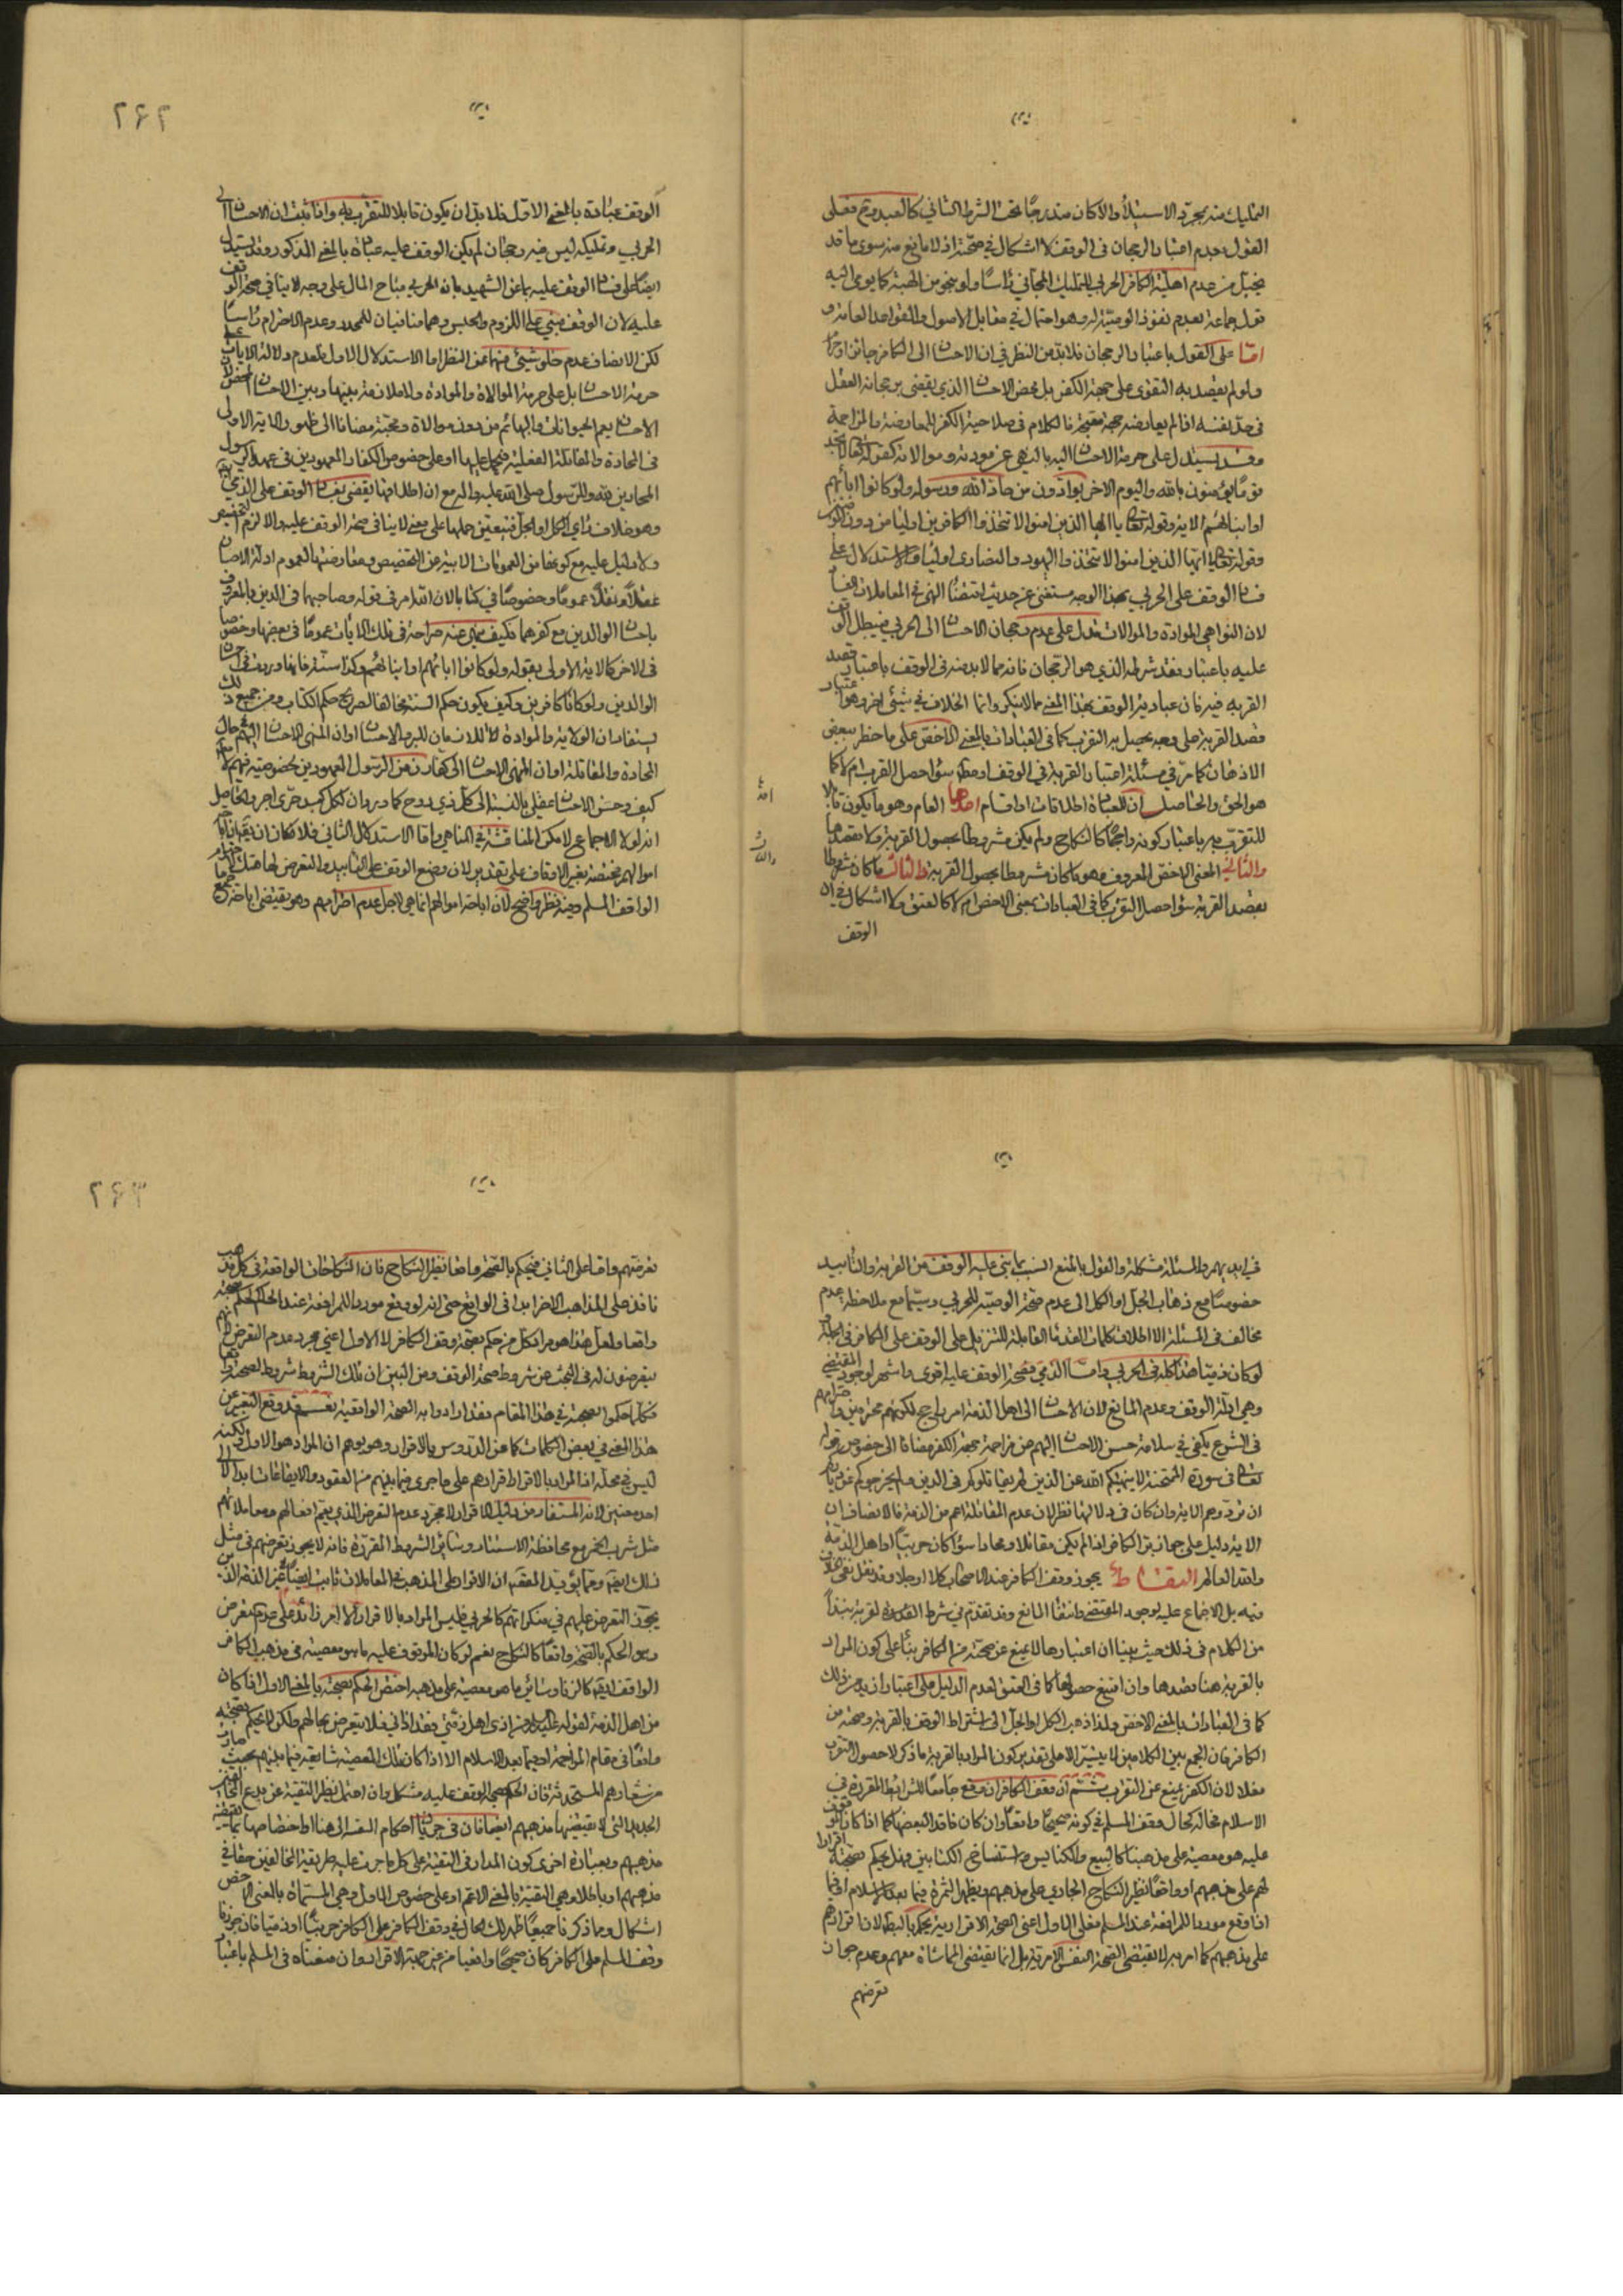 التمليك منه بمجرد الاستيلاء والا كان مندرجا تحت الشرط الثاني كالعبد وح فعلى
القول بعدم اعتبار الرجحان في الوقف لا اشكال في صحته اذ لا مانع منه سوى ما قد
يتخيل من عدم اهلية الكافر الحربي للتمليك المجاني راسا ولو بنحو من الهبة كما يومى اليه
قول جماعة بعدم نفوذ الوصية له وهو احتمال في مقابل الاصول والقواعد العامة و
اما على القول باعتبار الرجحان فلا بد من النظر في ان الاحسان الى الكافر جائز
ولو لم يقصد به التقوى على جهة الكفر بل محض الاحسان الذي يقضى برجحانه العقل
في حد نفسه اذا لم يعارضه جهة مقبحة فالكلام في صلاحية الكفر للمعارضة والمزاحمة
وقد يستدل على حرمة الاحسان اليه بالنهي عن مودته وموالاته كقوله تعالى لا تجد
قوما يؤمنون بالله واليوم الاخر يوادون من حاد الله ورسوله ولو كانوا اباءهم
او ابناءهم الاية وقوله تعالى يا ايها الذين امنوا لا تتخذوا الكافرين اولياء من دون المؤمنين
وقوله تعالى يا ايها الذين امنوا لا تتخذوا اليهود والنصارى اولياء والاستدلال على
فساد الوقف على الحربي بهذا الوجه مستغنى عن حديث اقتضاء النهي في المعاملات الفساد
لان النواهي الموادة والموالات تدل على عدم رجحان الاحسان الى الحربي فيبطل الوقف
عليه باعتبار فقد شرطه الذي هو الرجحان فانه مما لا بد منه في الوقف باعتبار قصد
القربة فيه فان عبادية الوقف بهذا المعنى مما لا ينكر وانما الخلاف في شيئ اخر وهو اعتبار
قصد القربة على وجه يحصل به التقرب كما في العبادات بالمعنى الاخص على ما خطر ببعض
الاذهان كما مر في مسئلة اعتبار القربة في الوقف او مطلقا سواء حصل القرب ام لا كما
هو الحق والحاصل ان للعبادة اطلاقات او اقسام احدها العام وهو ما يكون قابلا
للتقرب به باعتبار كونه راجحا كالنكاح ولم يكن مشروطا بحصول القربة ولا بقصدها
والثاني المعنى الاخص المعروف وهو ما كان مشروطا بحصول القربة والثالث ما كان مشروطا
بقصد القربة سواء حصل التقرب كما في العبادات بمعنى الاخص ام لا كالعتق ولا اشكال في ان
الوقف
٢٦٢
الوقف عبادة بالمعنى الاول فلا بد ان يكون قابلا للتقرب به واذا ثبت ان الاحسان الى
الحربي وتمليكه ليس فيه رجحان لم يكن الوقف عليه عبادة بالمعنى المذكور وقد يستدل
ايضا على فساد الوقف عليه بما عن الشهيد بان الحربي مباح المال على وجه لا ينافي صحة الوقف
عليه لان الوقف مبني على اللزوم والحبس وهما منافيان للتجدد وعدم الاحترام راسا
لكن الانصاف عدم خلو شيئ منهما عن النظر اما الاستدلال الاول فلعدم دلالة الايات على
حرمة الاحسان بل على حرمة الموالاة والموادة ولا ملازمة بينها وبين الاحسان المحض لان
الاحسان يعم الحيوانات والبهائم من دون موالاة ومحبة مضافا الى ظهور الاية الاولى
في المحادة والمقاتلة الفعلية فيحمل عليها او على خصوص الكفار المعهودين في عهد الرسول
المحادين لله وللرسول صلى الله عليه واله مع ان اطلاقها يقضى بفساد الوقف على الذمي ايضا
وهو خلاف راي الكل او الجل فيتعين حملها على معنى لا ينافى صحة الوقف عليه والا لزم التخصيص
ولا دليل عليه مع كونها من العمومات الابية عن التخصيص ومعارضتها لعموم ادلة الاحسان
عقلا ونقلا عموما وخصوصا في كتاب الله الامر في قوله وصاحبهما في الدنيا بالمعروف
باحسان الوالدين مع كفرهما فكيف ينهى عنه صراحة في تلك الايات عموما في بعضها وخصوصا
في الاخر كالاية الاولى بقوله ولو كانوا اباءهم او ابناءهم وكذا السنة فانها وردت في احسان
الوالدين ولو كانا كافرين وكيف يكون حكم السنة مخالفا لصريح حكم الكتاب ومن جميع ذلك
يستفاد ان الولاية والموادة لا تلازمان للبر والاحسان او ان المنهى الاحسان اليهم حال
المحادة والمقاتلة او ان المنهى الاحسان الى كفار زمن الرسول المعهودين لخصوصية فيهم
كيف وحسن الاحسان عقلي بالنسبة الى كل ذي روح كما ورد ان لكل كبد حرى اجر والحاصل
انه لولا الاجماع لامكن المناقشة في المناهي واما الاستدلال الثاني فلامكان ان يقال
اموالهم مختصة بغير الاوقاف على تقدير لان وضع الوقف على التابيد والتعرض لها هتك
الواقف المسلم وفيه نظر واضح لان اباحة اموالهم انما هي لاجل عدم احترامهم وهو يقتضى اباحة
في ايديهم والمسئلة مشكلة والقول بالمنع انسب بما بنى عليه الوقف من القربة والتابيد
خصوصا مع ذهاب الجل او الكل الى عدم صحة الوصية للحربي وسيما مع ملاحظة عدم
مخالف في المسئلة الا اطلاق كلمات القدماء القابلة للتنزيل على الوقف على الكافر في الجملة
لو كان ذميا هذا كله في الحربي واما الذمي فصحة الوقف عليه اقوى واشهر لوجود المقتضى
وهي ادلة الوقف وعدم المانع لان الاحسان الى اهل الذمة امر راجح لكونهم محترمين واحترامهم
في الشرع يكفى في سلامة حسن الاحسان اليهم عن مزاحمة جهة الكفر مضافا الى خصوص قوله
تعالى في سورة الممتحنة لا ينهيكم الله عن الذين لم يقاتلوكم في الدين ولم يخرجوكم من دياركم
ان تبروهم الاية وان كان في دلالتها نظر لان عدم المقاتلة اعم من الذمة فالانصاف ان
الاية دليل على جواز بر الكافر اذا لم يكن مقاتلا ومحادا سواء كان حربيا او اهل الذمة
والله العالم التقاط يجوز وقف الكافر عند الاصحاب كلا او جلا وقد نقل نفي الخلاف
فيه بل الاجماع عليه لوجود المقتضى وانتفاء المانع وقد تقدم في شرط القربة
من الكلام في ذلك حيث بينا ان اعتبارها لا يمنع عن صحته من الكافر بناء على كون المراد
بالقربة هنا قصدها وان امتنع حصولها كما في العتق لعدم الدليل على اعتبار ازيد من ذلك
كما في العبادات بالمعنى الاخص ولذا ذهب الكل او الجل الى اشتراط الوقف بالقربة وصحته من
الكافر فان الجمع بين الكلامين لا يتيسر الا على تقدير كون المراد بالقربة ما ذكر لا حصول التقرب
فعلا لان الكفر يمنع عن التقرب ثم ان وقف الكافر ان وقع جامعا للشرائط المقررة في
الاسلام فحاله كحال وقف المسلم في كونه صحيحا واقعا وان كان فاقدا لبعضها كما اذا كان الموقوف
عليه هو معصية على مذهبنا كالبيع والكنايس واستنساخ الكتابين فهل يحكم بصحته اقرارا
لهم على مذهبهم او واقعا نظير النكاح الجاري على مذهبهم ويظهر الثمرة فيما بعد الاسلام او فيما
اذا وقع موردا للمرافعة عند المسلم فعلى الاول اعنى الصحة الاقرارية يحكم بالبطلان لان اقرارهم
على مذهبهم كما امر به لا يقتضى الصحة النفس الامرية بل انما يقتضى المماشاة معهم وعدم جواز
تعرضهم
٢٦٣
تعرضهم واما على الثاني فيحكم بالصحة واقعا نظير النكاح فان النكاحات الواقعة في كل مذهب
نافذ على المذاهب الاخر ايضا في الواقع حتى انه لو وقع موردا للمرافعة عند الحاكم لحكم بصحته
واقعا ولعل هذا هو مراد كل من حكم بصحة وقف الكافر لا الاول اعنى مجرد عدم التعرض
يتعرضون له في البحث عن شروط صحة الوقف ومن البين ان تلك الشروط شروط لصحته
فكلما حكموا بصحته في هذا المقام فقد ارادوا به الصحة الواقعية نعم قد وقع التعبير عن
هذا المعنى في بعض الكلمات كما عن الدروس بالاقرار وهو يوهم ان المراد هو الاول لكنه
ليس في محله اذ المراد بالاقرار اقرارهم على ما جرى فيما بينهم من العقود والايقاعات
احد معنيين لانه المستفاد من دليل الاقرار لا مجرد عدم التعرض الذي يعم افعالهم ومعاملاتهم
مثل شرب الخمر مع محافظة الاستتار وسائر الشروط المقررة فانه لا يجوز تعرضهم في مثل
ذلك ايضا ومما يؤيد المعنى ان الاقرار على المذهب في المعاملات ثابت ايضا في غير الذمة الذين
يجوز التعرض عليهم في منكراتهم كالحربي فليس المراد بالاقرار الا امر زائد على عدم التعرض
وهو الحكم بالصحة واقعا كالنكاح نعم لو كان الموقوف عليه ما هو معصية في مذهب الكافر
الواقف ايضا كالزنا وسائر ما هو معصية على مذهبه اختص الحكم بصحته بالمعنى الاول اذا كان
من اهل الذمة لقوله عليه السلام من اذى اهل ذمتي فقد اذاني فلا يتعرض بحالهم ولكن لا يحكم بصحته
واقعا في مقام المزاحمة او فيما بعد الاسلام الا اذا كان تلك المعصية شايعة فيما بينهم بحيث صارت
من شعارهم المستحدثة فان الحكم بصحة الوقف عليه مشكل وان احتمل نظير التقية عن بدع
الجديد التي لا يقتضيها مذهبهم ايضا فان في جريان احكام التقية الى هنا او اختصاصها بما يقتضيه
مذهبهم وبعبارة اخرى كون المدار في التقية على كل ما جرت عليه طريقة المخالفين حقا في
مذهبهم او باطلا وهي التقية بالمعنى الاعم او على خصوص الاول وهي المسماة بالمعنى الاخص
اشكال ومما ذكرنا جميعا ظهر لك الحال في وقف الكافر على الكافر حربيا او ذميا فان جوزنا
وقف المسلم على الكافر كان صحيحا واقعيا من غير جهة الاقرار وان منعناه في المسلم باعتبار